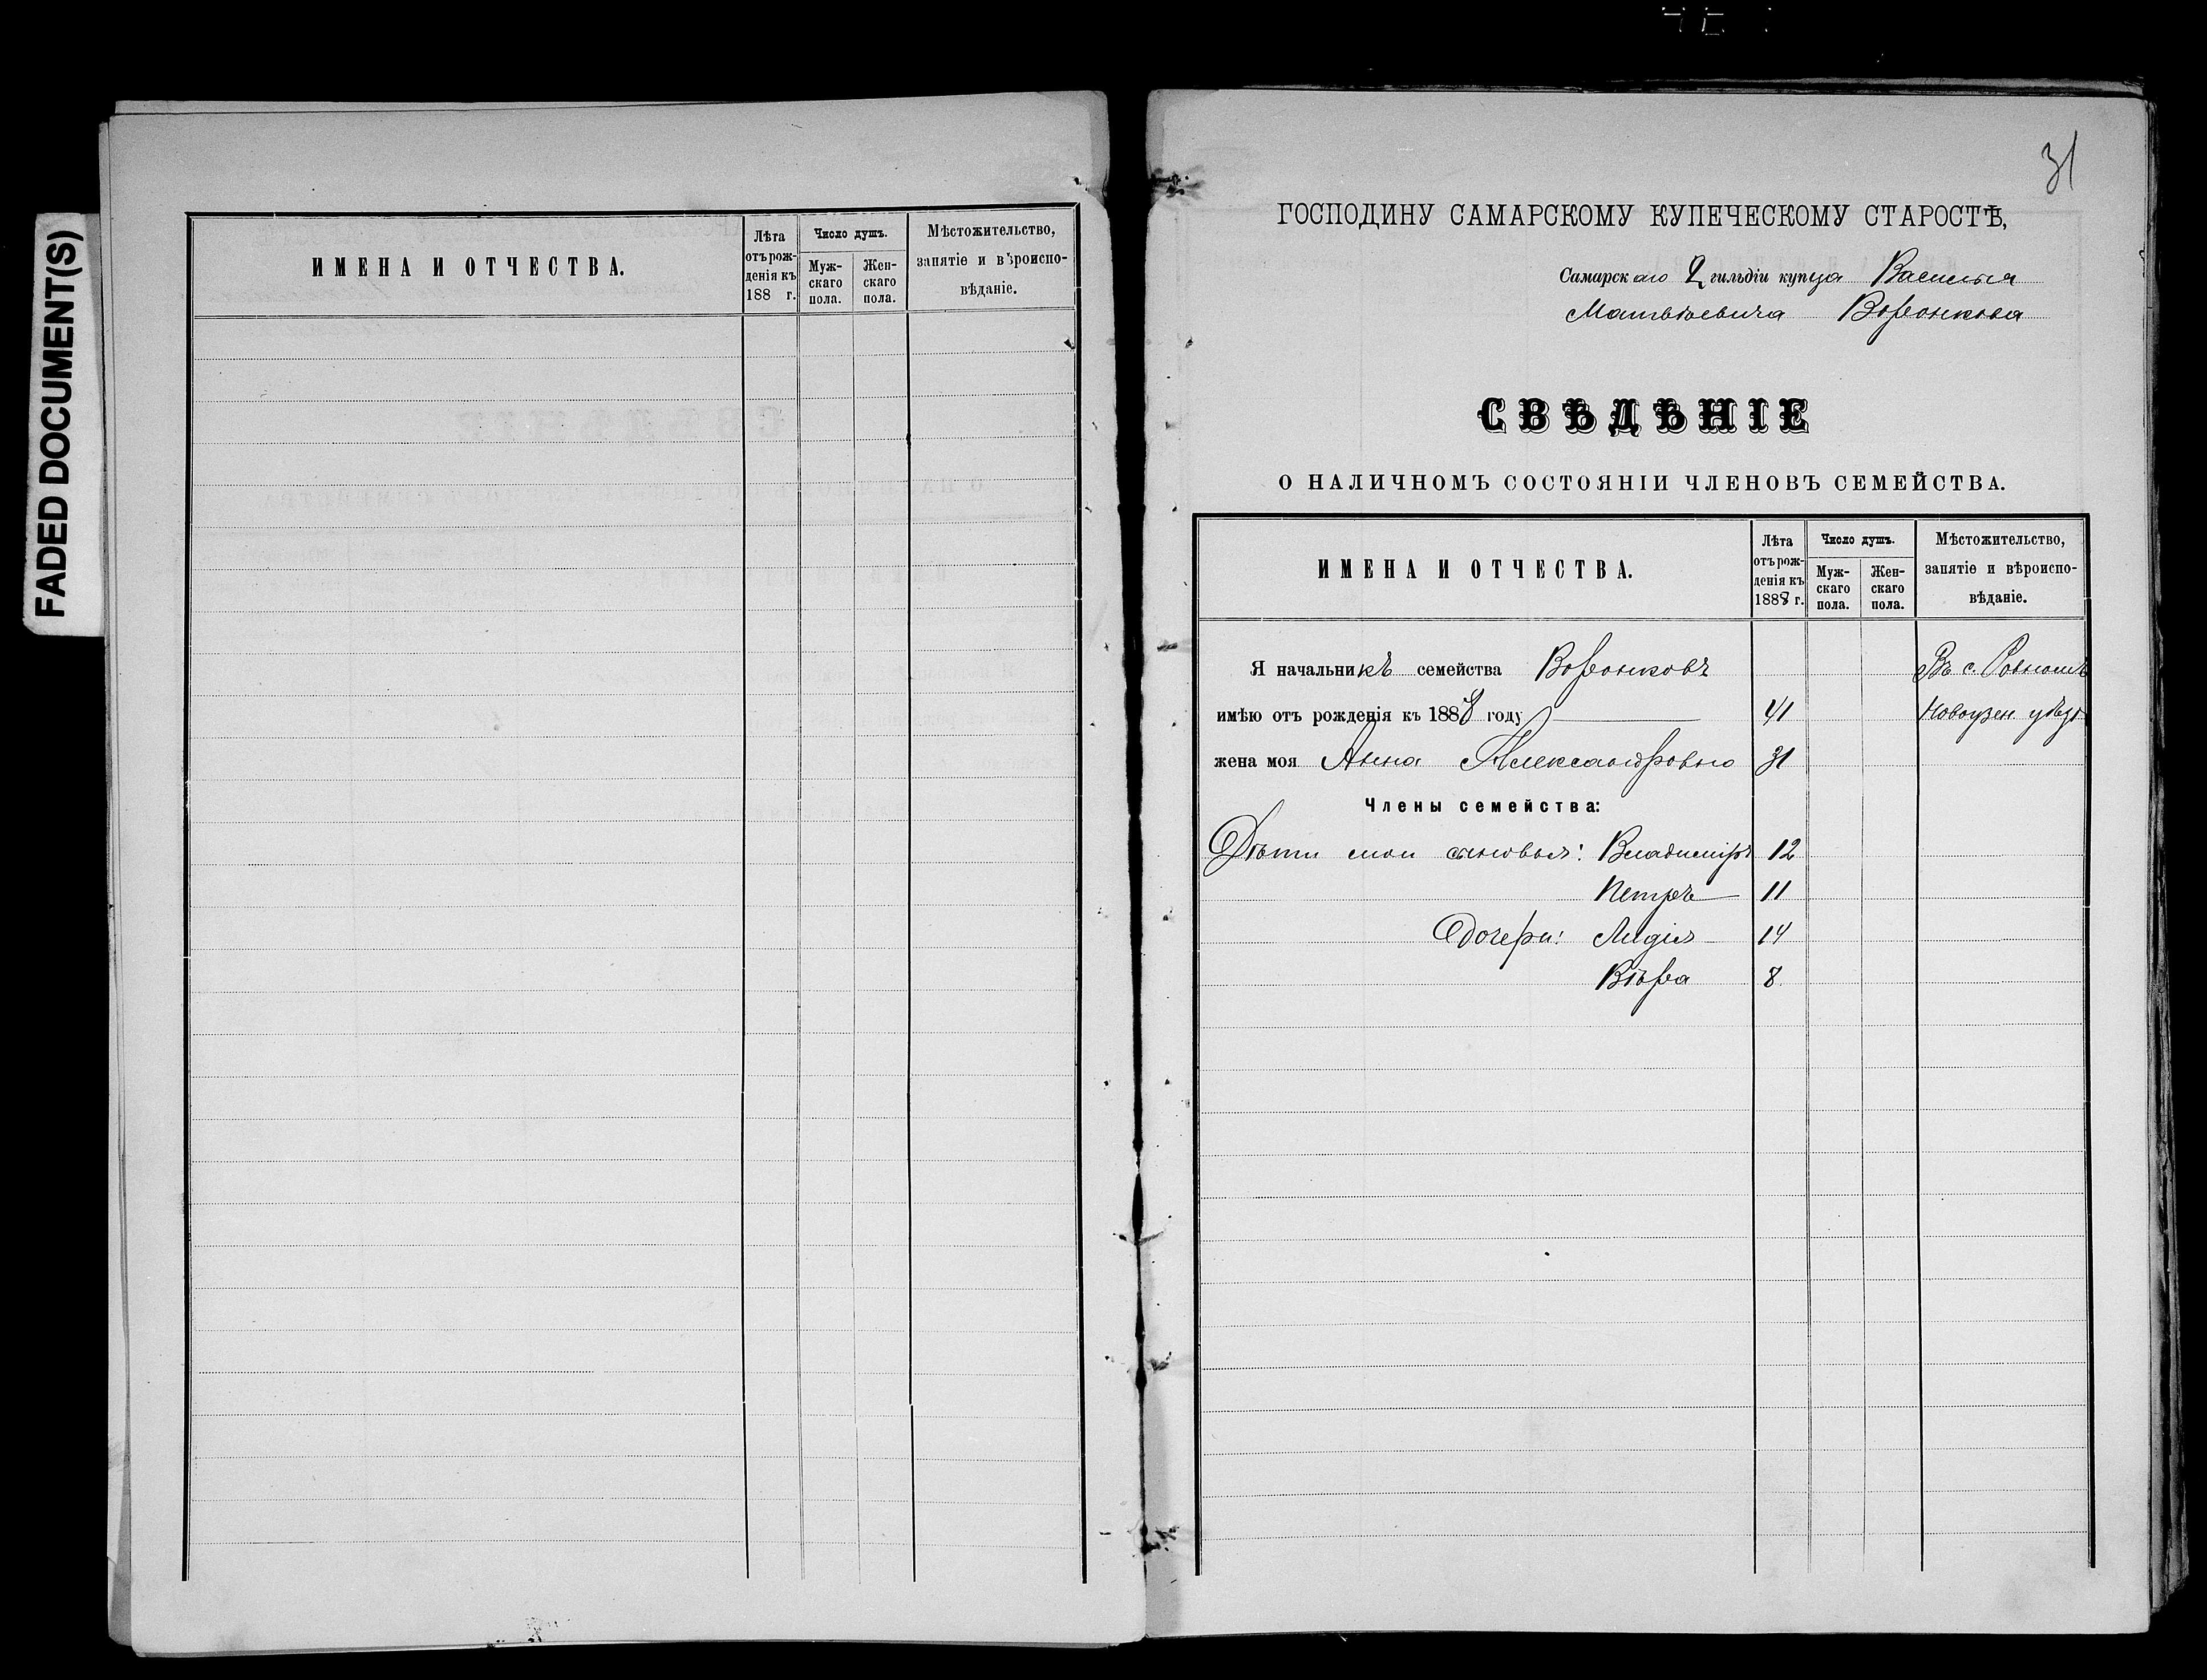 FADED DOCUMENT(S)
ИМЕНА И ОТЧЕСТВА.
Лѣта отъ рожденія къ 188 г.
Число душъ.
Мужскаго пола.
Женскаго пола.
Мѣстожительство, занятіе и вѣроисповѣданіе.
31
ГОСПОДИНУ САМАРСКОМУ КУПЕЧЕСКОМУ СТАРОСТѢ,
Самарскаго 2 гильдіи купца Василья
Матвѣевича Воронкова
СВѢДѢНІЕ
О НАЛИЧНОМЪ СОСТОЯНІИ ЧЛЕНОВЪ СЕМЕЙСТВА.
ИМЕНА И ОТЧЕСТВА.
Лѣта отъ рожденія къ 1888 г.
Число душъ.
Мужскаго пола.
Женскаго пола.
Мѣстожительство, занятіе и вѣроисповѣданіе.
Я начальникъ семейства Воронковъ Въ с. Ровномъ
имѣю отъ рожденія къ 1888 году 41 Новоузен уѣзд
жена моя Анна Александровна 31
Члены семейства:
Дѣти мои сыновья: Владиміръ 12
Петръ 11
Дочери: Лидія 14
Вѣра 8